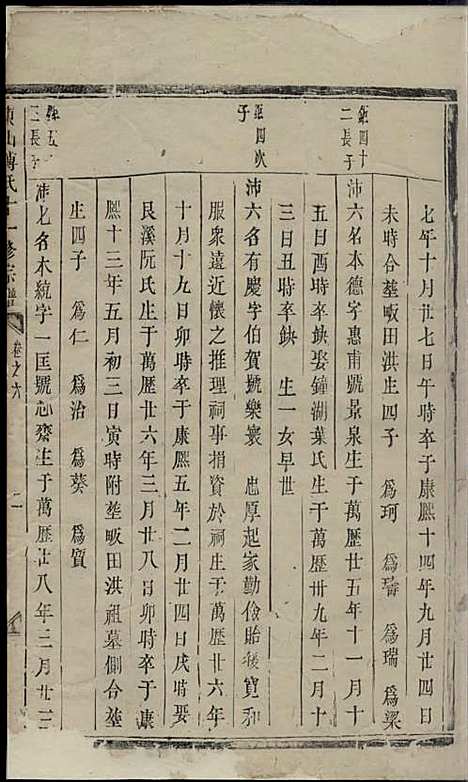 七年十月廿七日午時卒于康熙十四年九月廿四日
未時合塟畈田洪生四子　爲珂　爲璹　爲瑞　爲梁
鉅四十二長子
沛六名本德字惠甫號景泉生于萬歷廿五年十一月十
五日酉時卒缺娶鐘湖葉氏生于萬歷卅九年二月十
三日丑時卒缺　生一女早世
鉅四次子
沛六名有慶字伯賀號樂寰　忠厚起家勤儉貽後寬和
服衆遠近懷之推理祠事捐資於祠生于萬歷廿六年
十月十九日卯時卒于康熙五年二月廿四日戌時娶
艮溪阮氏生于萬歷廿六年三月廿八日卯時卒于康
熙十三年五月初三日寅時附塟畈田洪祖墓側合塟
生四子　爲仁　爲治　爲葵　爲質
三長子
沛七名本統字一匡號志齋生于萬歷廿八年三月廿三
山傅氏十一修宗譜　卷之六